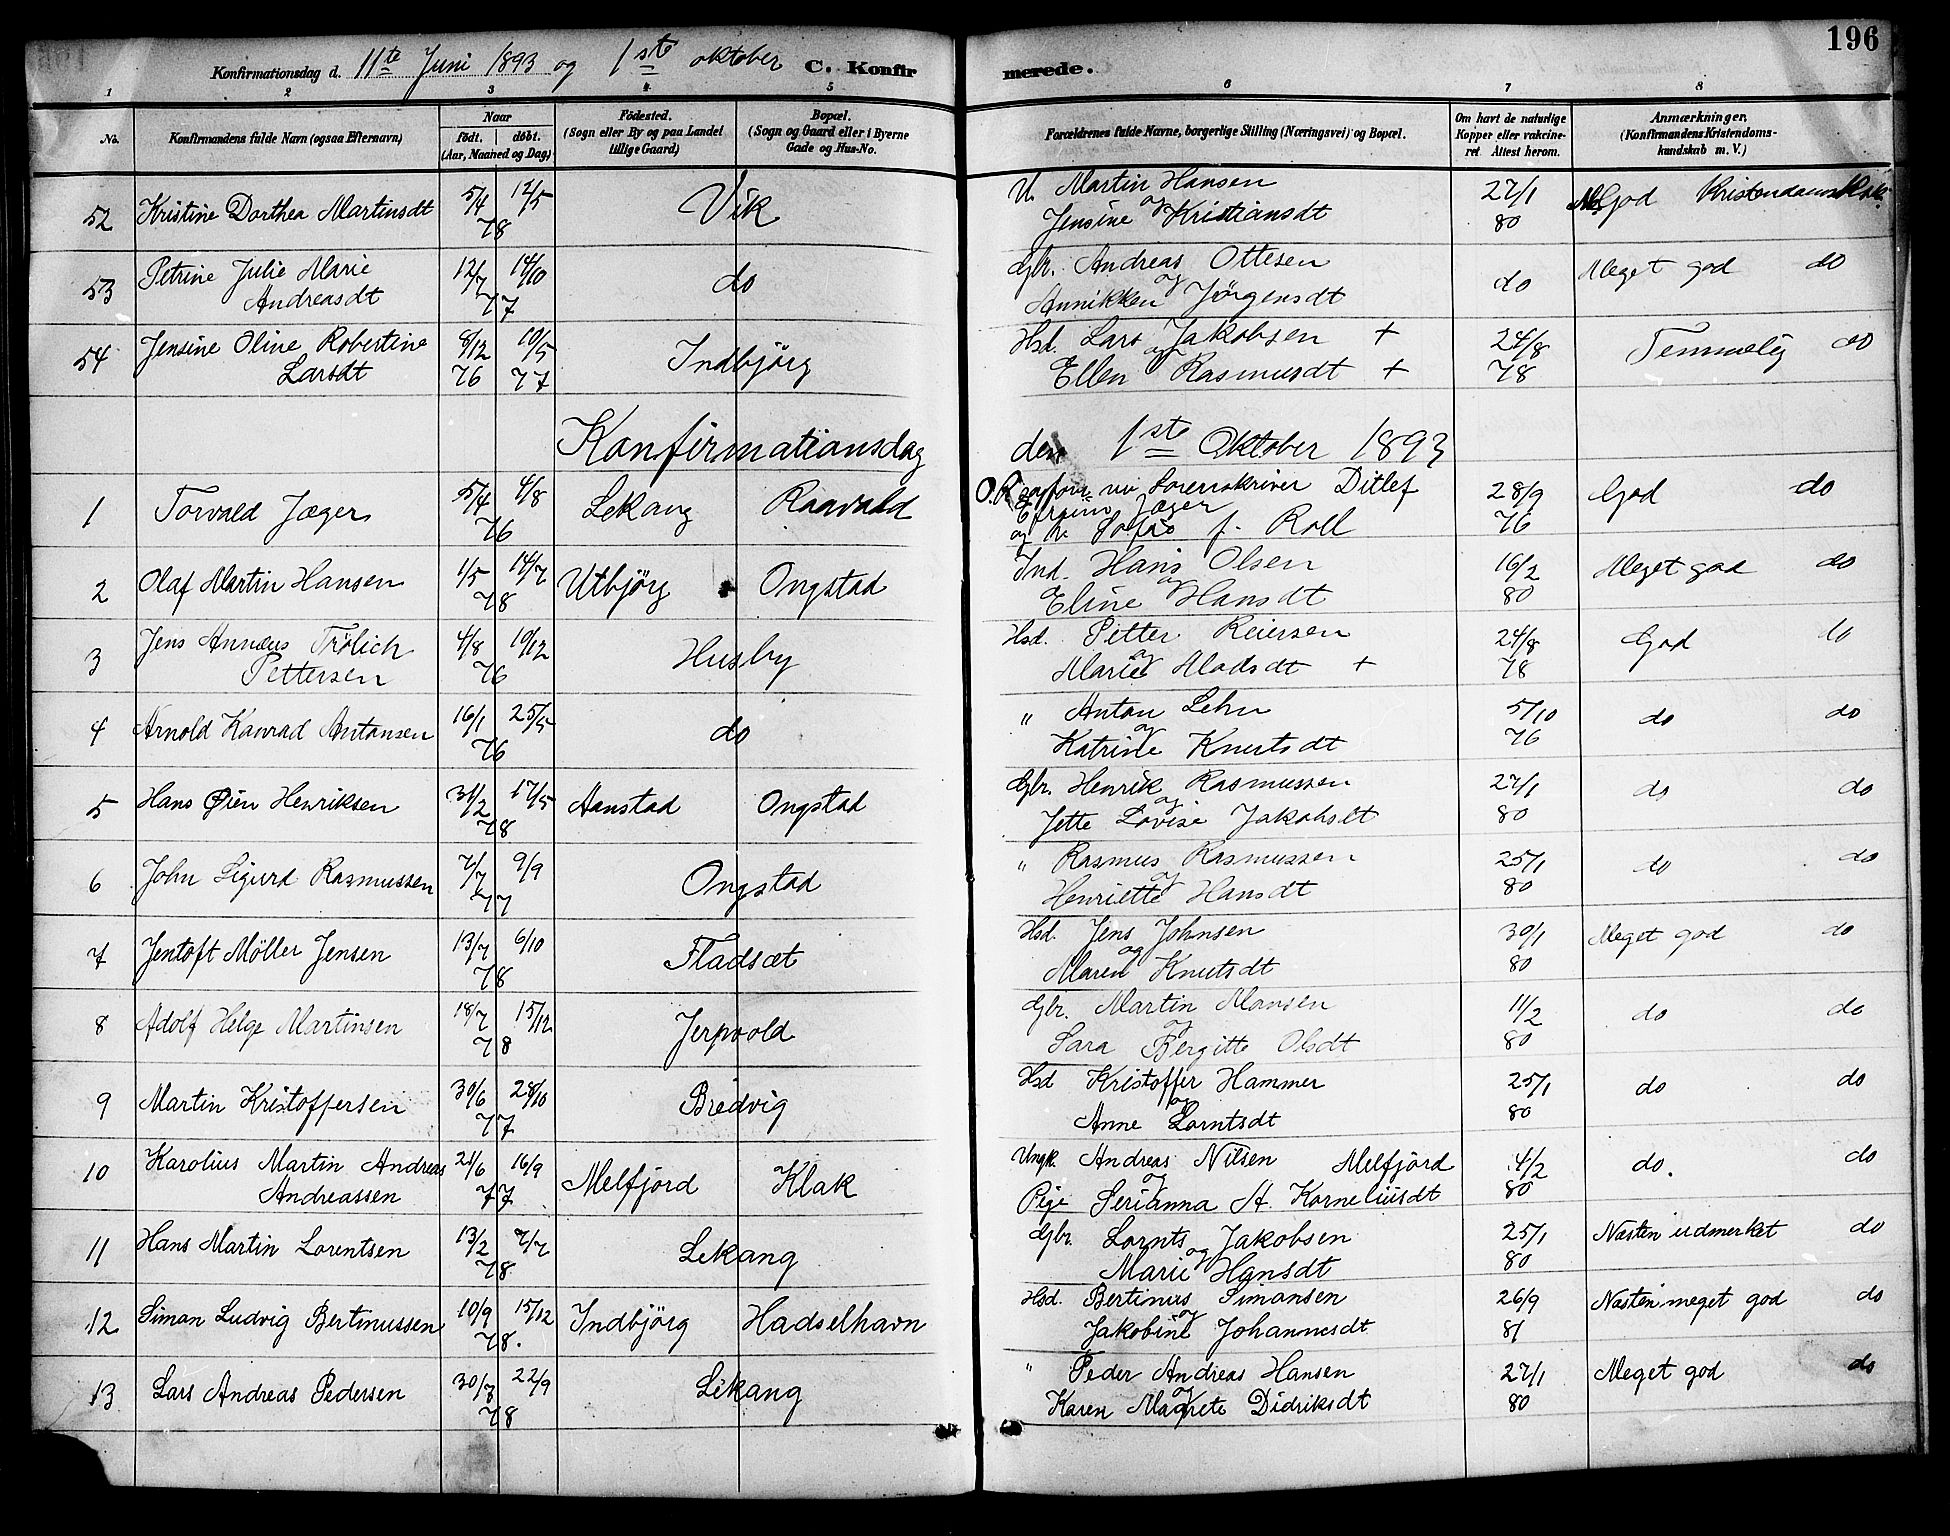 196
Konfirmationsdag d. 11te Juni 1893 og 1ste oktober C. Konfirmerede.
1 2 3 4 5 6 7 8
No. Konfirmandens fulde Navn (ogsaa Efternavn) Naar født. døbt. (Aar, Maaned og Dag) Fødested. (Sogn eller By og paa Landet tillige Gaard) Bopæl. (Sogn og Gaard eller i Byerne Gade og Hus-No.) Forældrenes fulde Navne, borgerlige Stilling (Næringsvei) og Bopæl. Om havt de naturlige Kopper eller vakcineret. Attest herom. Anmærkninger. (Konfirmandens Kristendomskundskab m. V.)
52 Kristine Dorthea Martinsdt 5/4 12/5 78 Vik U. Martin Hansen og Jensine Kristiansdt 27/1 80 God
53 Petrine Julie Marie Andreasdt 12/7 14/10 77 do Gbr. Andreas Ottesen og Annikken Jörgensdt do Meget god do
54 Jensine Oline Robertine Larsdt 8/12 76 10/5 77 Indbjörg Hsd. Lars Jakobsen + og Ellen Rasmusdt + 24/8 78 Temmelig do
Konfirmationsdag den 1ste Oktober 1893
1 Torvald Jæger 5/4 4/8 76 Lekang Raavald Sorenskriver Ditlef Jæger og f. Roll 28/9 76 God do
2 Olaf Martin Hansen 1/5 14/7 78 Utbjörg Ongstad Ind. Hans Olsen og Eline Hansdt 16/2 80 Meget god do
3 Jens Annæus Frölich Pettersen 4/8 10/12 76 Husby Hsd. Petter Reiersen og Marie Madsdt + 24/8 78 God do
4 Arnold Konrad Antonsen 16/1 25/5 76 do " Anton Lehn og Katrine Knutsdt 5/10 76 do do
5 Hans Øien Henriksen 31/2 17/5 78 Aanstad Ongstad Gbr. Henrik Rasmussen og Jette Lovise Jakobsdt 27/1 80 do do
6 John Sigurd Rasmussen 7/7 9/9 77 Ongstad " Rasmus Rasmussen og Henriette Hansdt 25/1 80 do do
7 Jentoft Möller Jensen 13/7 6/10 78 Fladsæt Hsd. Jens Johnsen og Maren Knutsdt 30/1 80 Meget god do
8 Adolf Helge Martinsen 18/7 15/12 78 Jerpvold Gbr. Martin Monsen og Sara Bergitte Olsdt 11/2 80 do do
9 Martin Kristoffersen 30/6 28/10 77 Bredvig Hsd Kristoffer Hammer og Anne Lorntsdt 25/1 80 do do
10 Karolius Martin Andreas Andreassen 21/6 16/9 77 Melfjord Klak Ungk. Andreas Nilsen Melfjord og Pige Serianna A. Korneliusdt 4/2 80 do. do
11 Hans Martin Lorentsen 13/2 7/7 78 Lekang Gbr. Lornts Jakobsen og Marie Hansdt 25/1 80 Næsten udmerket do
12 Simon Ludvig Bertinussen 10/9 15/12 78. Indbjörg Hadselhavn Hsd. Bertinus Simonsen og Jakobine Johannesdt 26/9 81 Næsten meget god do
13 Lars Andreas Pedersen 30/7 22/9 78 Lekang " Peder Andreas Hansen og Karen Magrete Didriksdt 27/1 80 Meget god do